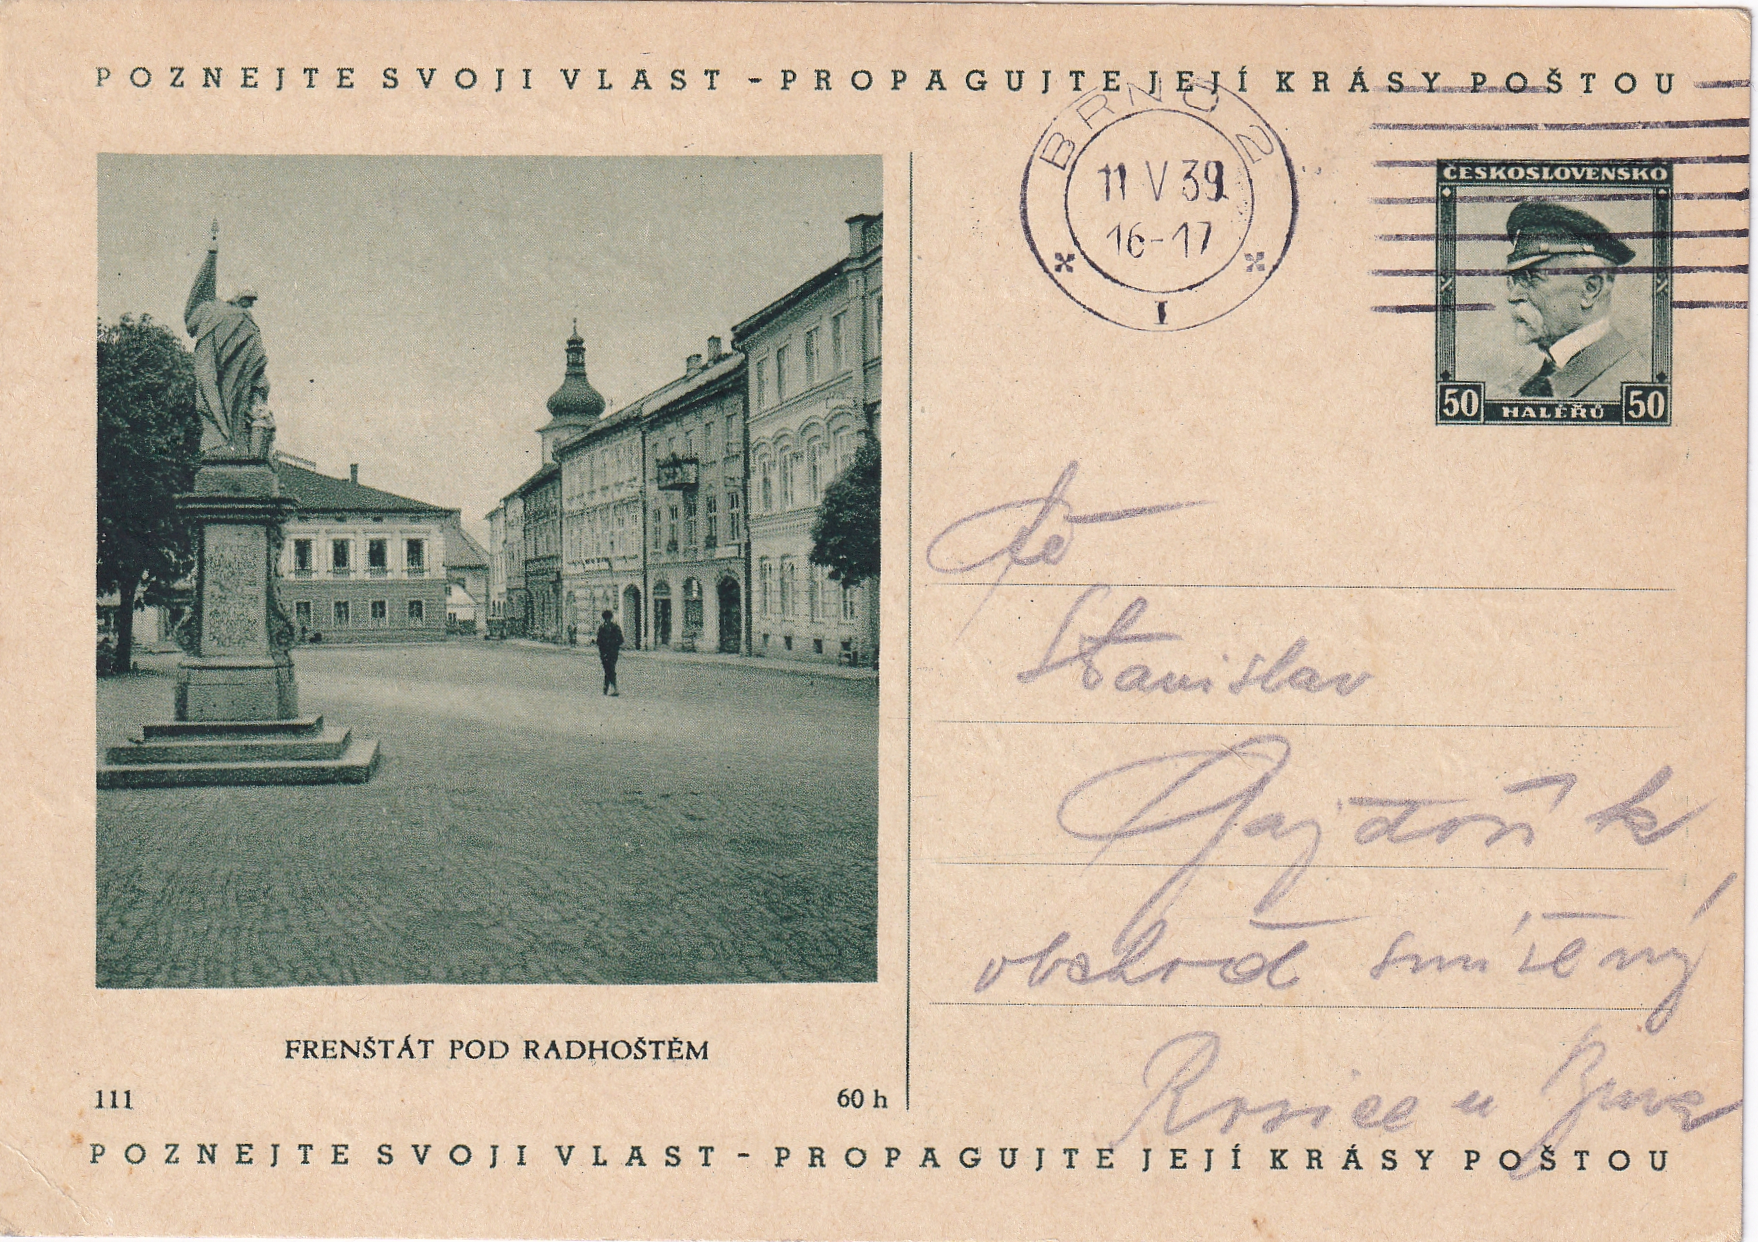 POZNEJTE SVOJI VLAST - PROPAGUJTE JEJÍ KRÁSY POŠTOU
BRNO 2
11 V 39
16-17
1
ČESKOSLOVENSKO
50 HALÉŘŮ 50
Stanislav
Gajdošík
obchod smíšený
Rosice u Brna
FRENŠTÁT POD RADHOŠTĚM
111
60 h
POZNEJTE SVOJI VLAST - PROPAGUJTE JEJÍ KRÁSY POŠTOU